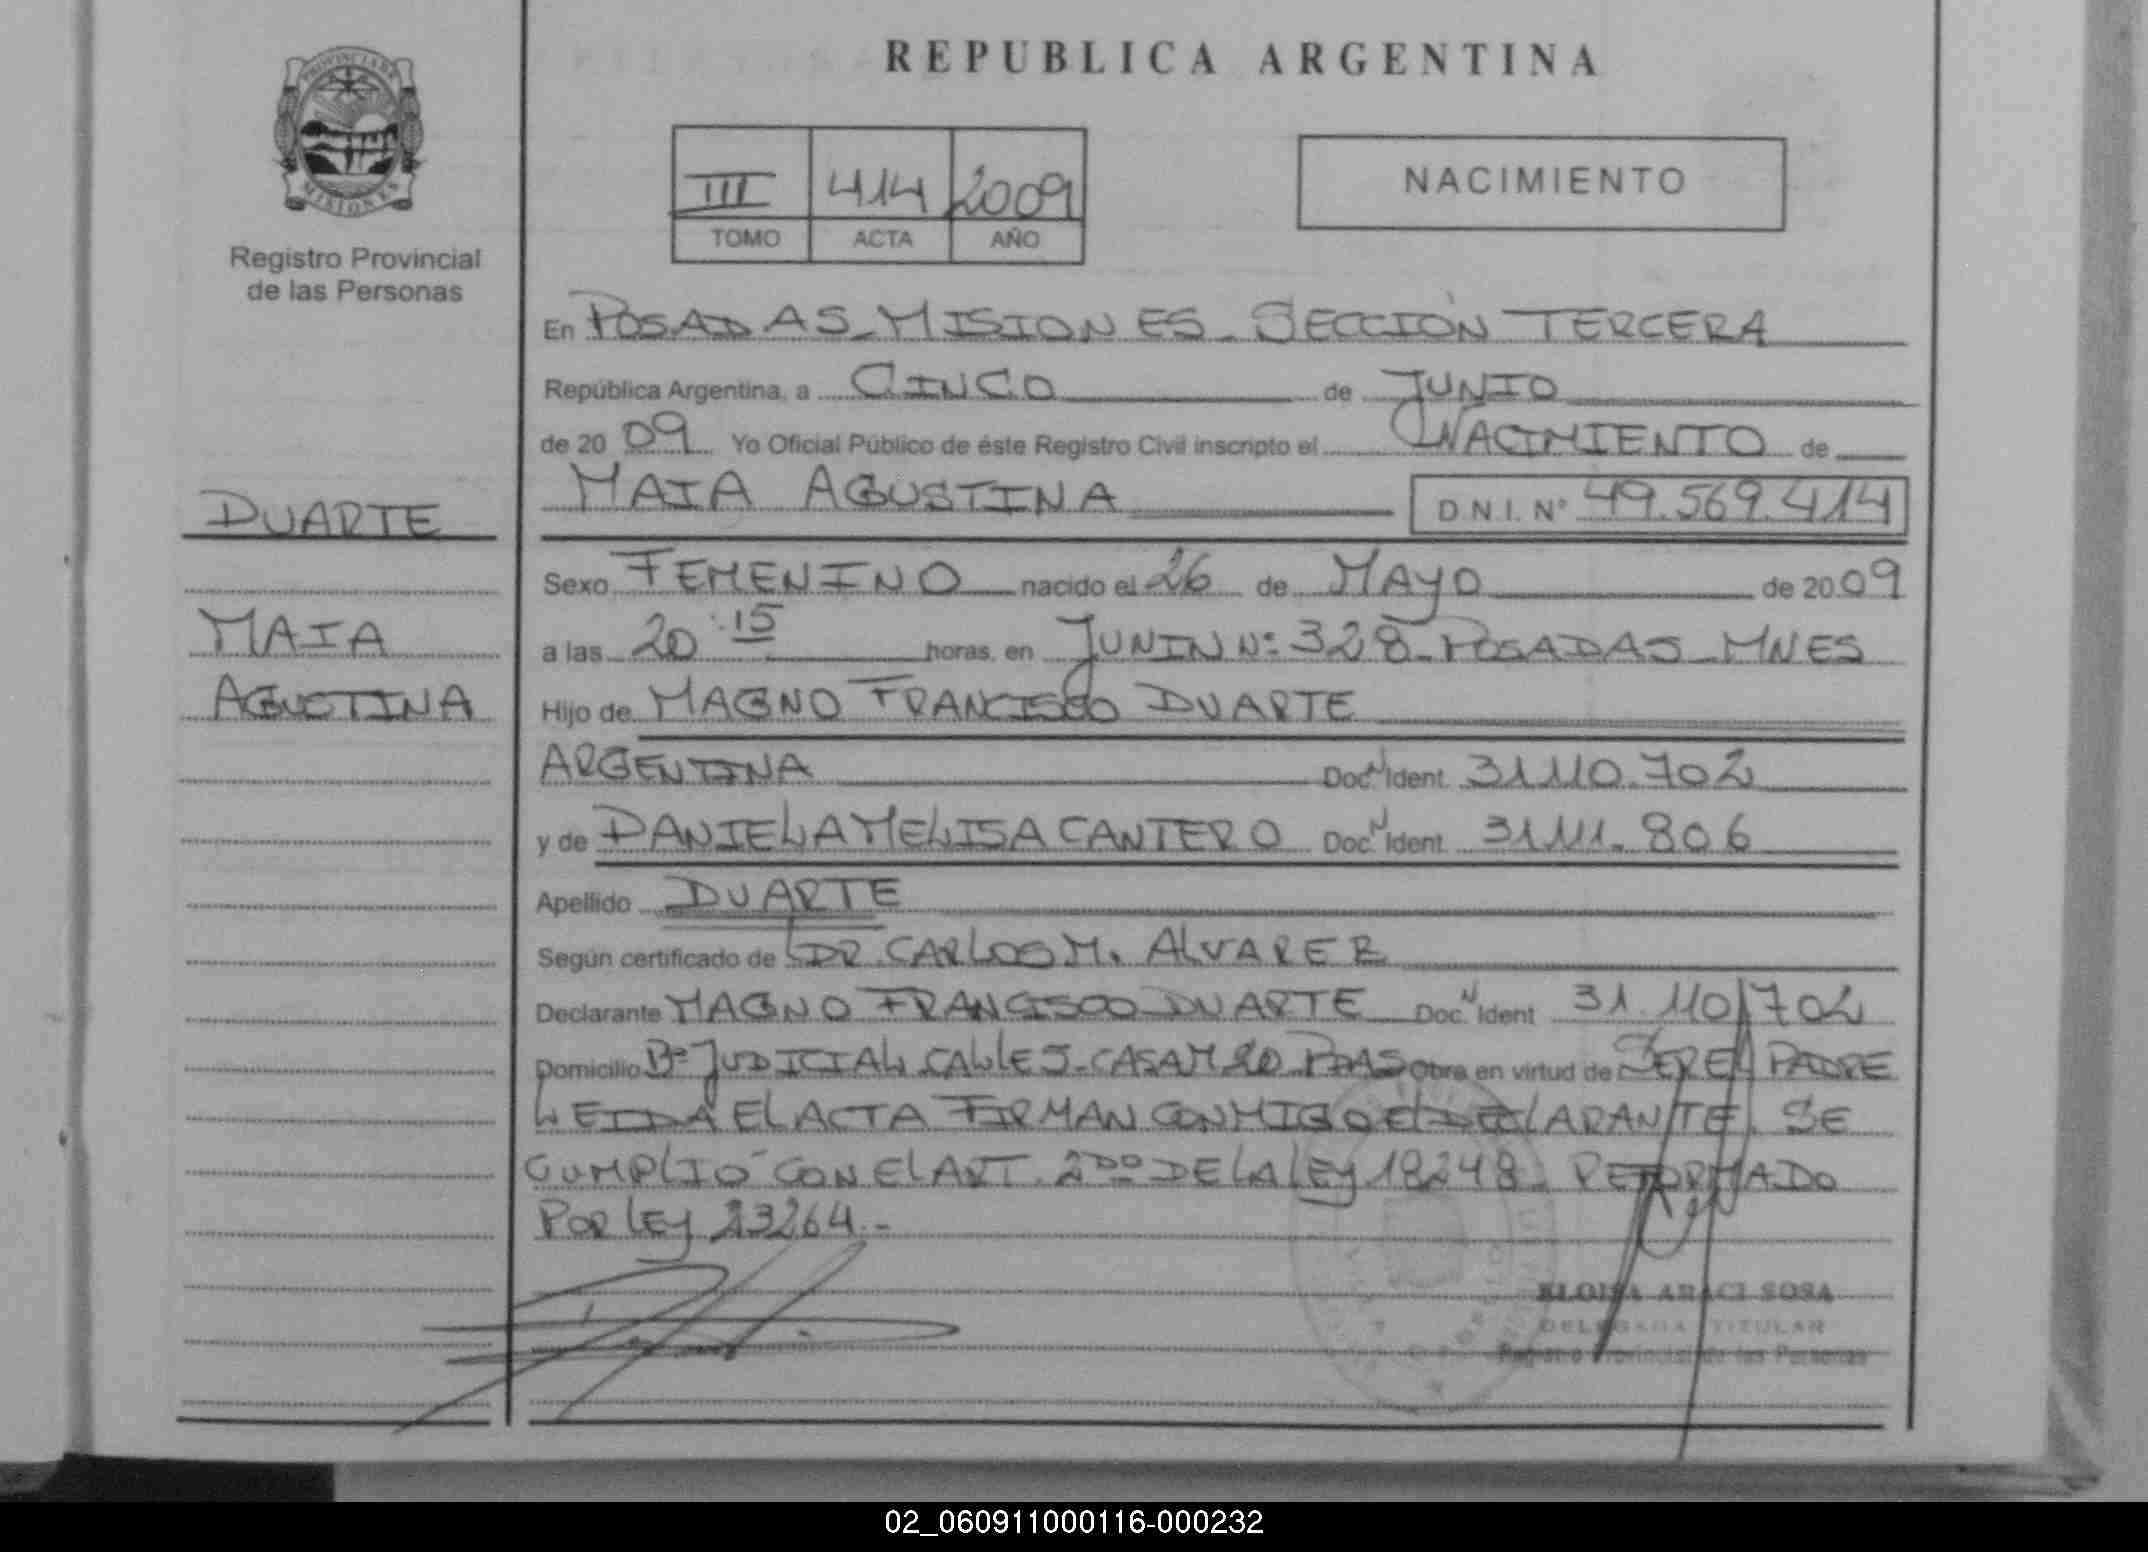 REPUBLICA ARGENTINA
PROVINCIA DE
MISIONES
Registro Provincial
de las Personas
III 414 2009
TOMO ACTA AÑO
NACIMIENTO
En POSADAS_MISIONES_SECCIÓN TERCERA
República Argentina, a CINCO de JUNIO
de 2009 Yo Oficial Público de éste Registro Civil inscripto el NACIMIENTO de
MAIA AGUSTINA D.N.I. Nº 49.569.414
DUARTE
MAIA
AGUSTINA
Sexo FEMENINO nacido el 26 de MAYO de 2009
a las 20:15 horas, en JUNIN Nº 328_POSADAS_MNES
Hijo de MAGNO FRANCISCO DUARTE
ARGENTINA Doc. N Ident. 31.110.702
y de DANIELA MELISA CANTERO Doc. N Ident. 31.111.806
Apellido DUARTE
Según certificado de DR. CARLOS M. ALVAREZ
Declarante MAGNO FRANCISCO DUARTE Doc. N Ident 31.110.702
Domicilio Bº JUDICIAL CALLE J_CASA M 20 PDAS Obra en virtud de SER EL PADRE
LEIDA EL ACTA FIRMAN CONMIGO EL DECLARANTE. SE
CUMPLIO CON EL ART. 2DO DE LA LEY 18248. REFORMADO
POR LEY 23264.-
ELOISA ARACI SOSA
DELEGADA TITULAR
Registro Provincial de las Personas
02_060911000116-000232